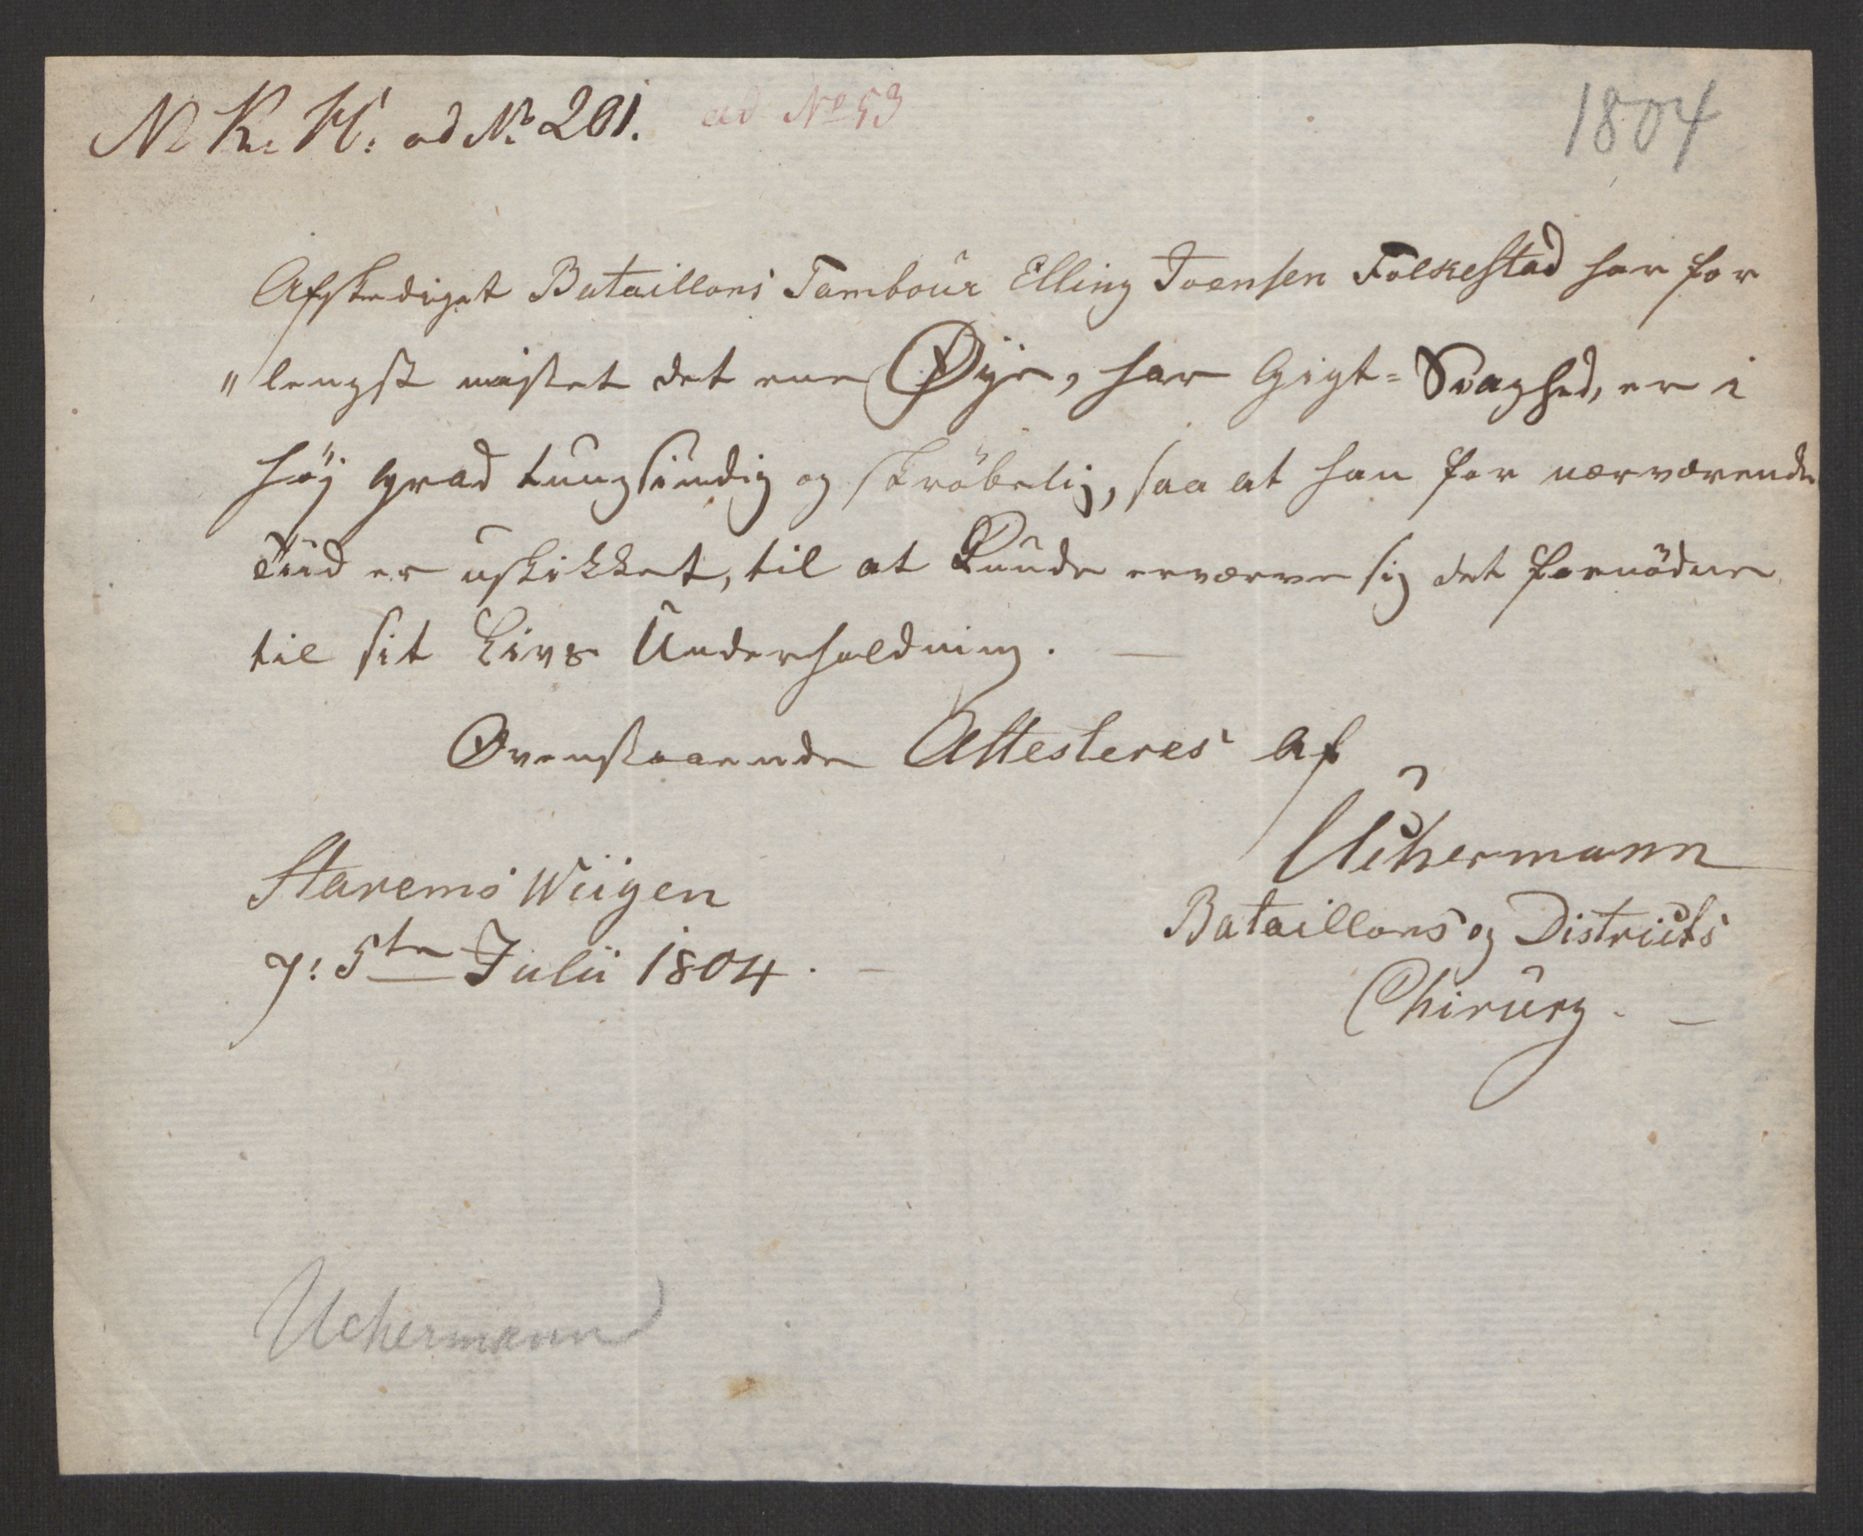 N. K. K: ad No 201. ad No 53
1804
Afskediget Bataillons Tambour Elling Ivensen Folkestad har for
"lengst mistet det ene Øye, har Gigt=Svaghed, er i
høj grad tungsindig og skröbelig, saa at han for nærværende
Tiid er uskikket, til at kunde erværve sig det fornödne
til sit Livs Underholdning. —
Ovenstaaende Attesteres af
Uchermann
Starems Wiigen
Bataillons og Districts
7: 5te Julii 1804. —
Chirurg. —
Uchermann